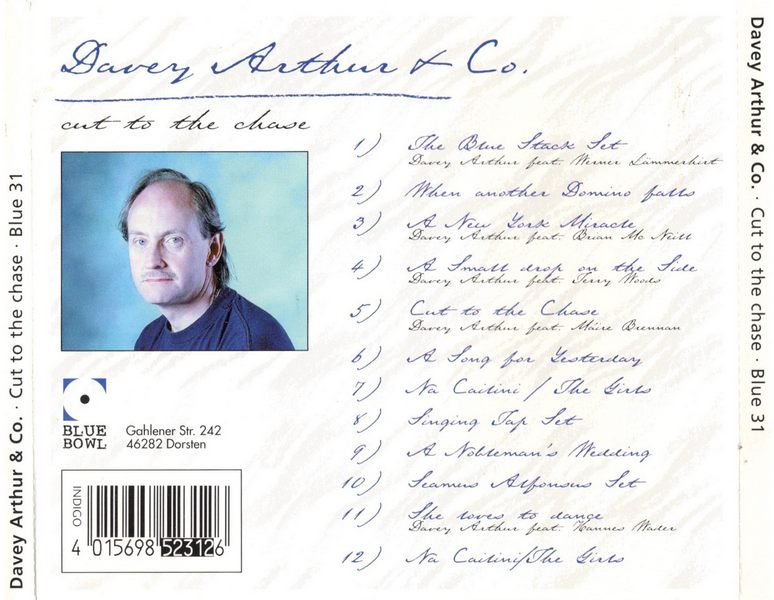 Davey Arthur & Co.
cut to the chase
1) The Blue Stack Set
Davey Arthur feat. Werner Lämmerhirt
2) When another Domino falls
3) A New York Miracle
Davey Arthur feat. Brian Mc Neill
4) A Small drop on the Side
Davey Arthur feat. Terry Woods
5) Cut to the Chase
Davey Arthur feat. Máire Brennan
6) A Song for Yesterday
7) Na Caitini / The Girls
8) Singing Tap Set
9) A Nobleman's Wedding
10) Seamus Alfonsus Set
11) She loves to dance
Davey Arthur feat. Hannes Wader
12) Na Caitini/The Girls
BLUE
BOWL
Gahlener Str. 242
46282 Dorsten
INDIGO
4 015698 523126
Davey Arthur & Co. · Cut to the chase · Blue 31
Davey Arthur & Co. · Cut to the chase · Blue 31